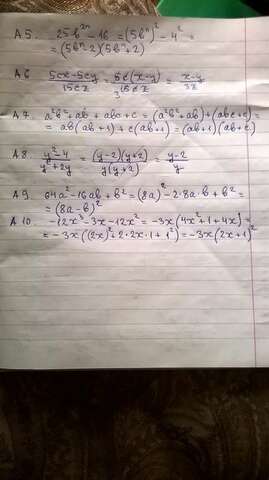 A5. 25b²ⁿ - 16 = (5bⁿ)² - 4² =
= (5bⁿ-2)(5bⁿ+2)
A6 (5cx-5cy)/(15cx) = (5c(x-y))/(15cx) = (x-y)/(3x)
A7. a²b²+ab + abc+c = (a²b²+ab)+(abc+c) =
= ab(ab+1)+c(ab+1)=(ab+1)(ab+c)
A8. (y²-4)/(y²+2y) = ((y-2)(y+2))/(y(y+2)) = (y-2)/y
A9. 64a²-16ab+b² = (8a)²-2·8a·b+b² =
= (8a-b)²
A10. -12x³-3x-12x² = -3x(4x²+1+4x) =
= -3x((2x)²+2·2x·1+1²) = -3x(2x+1)²